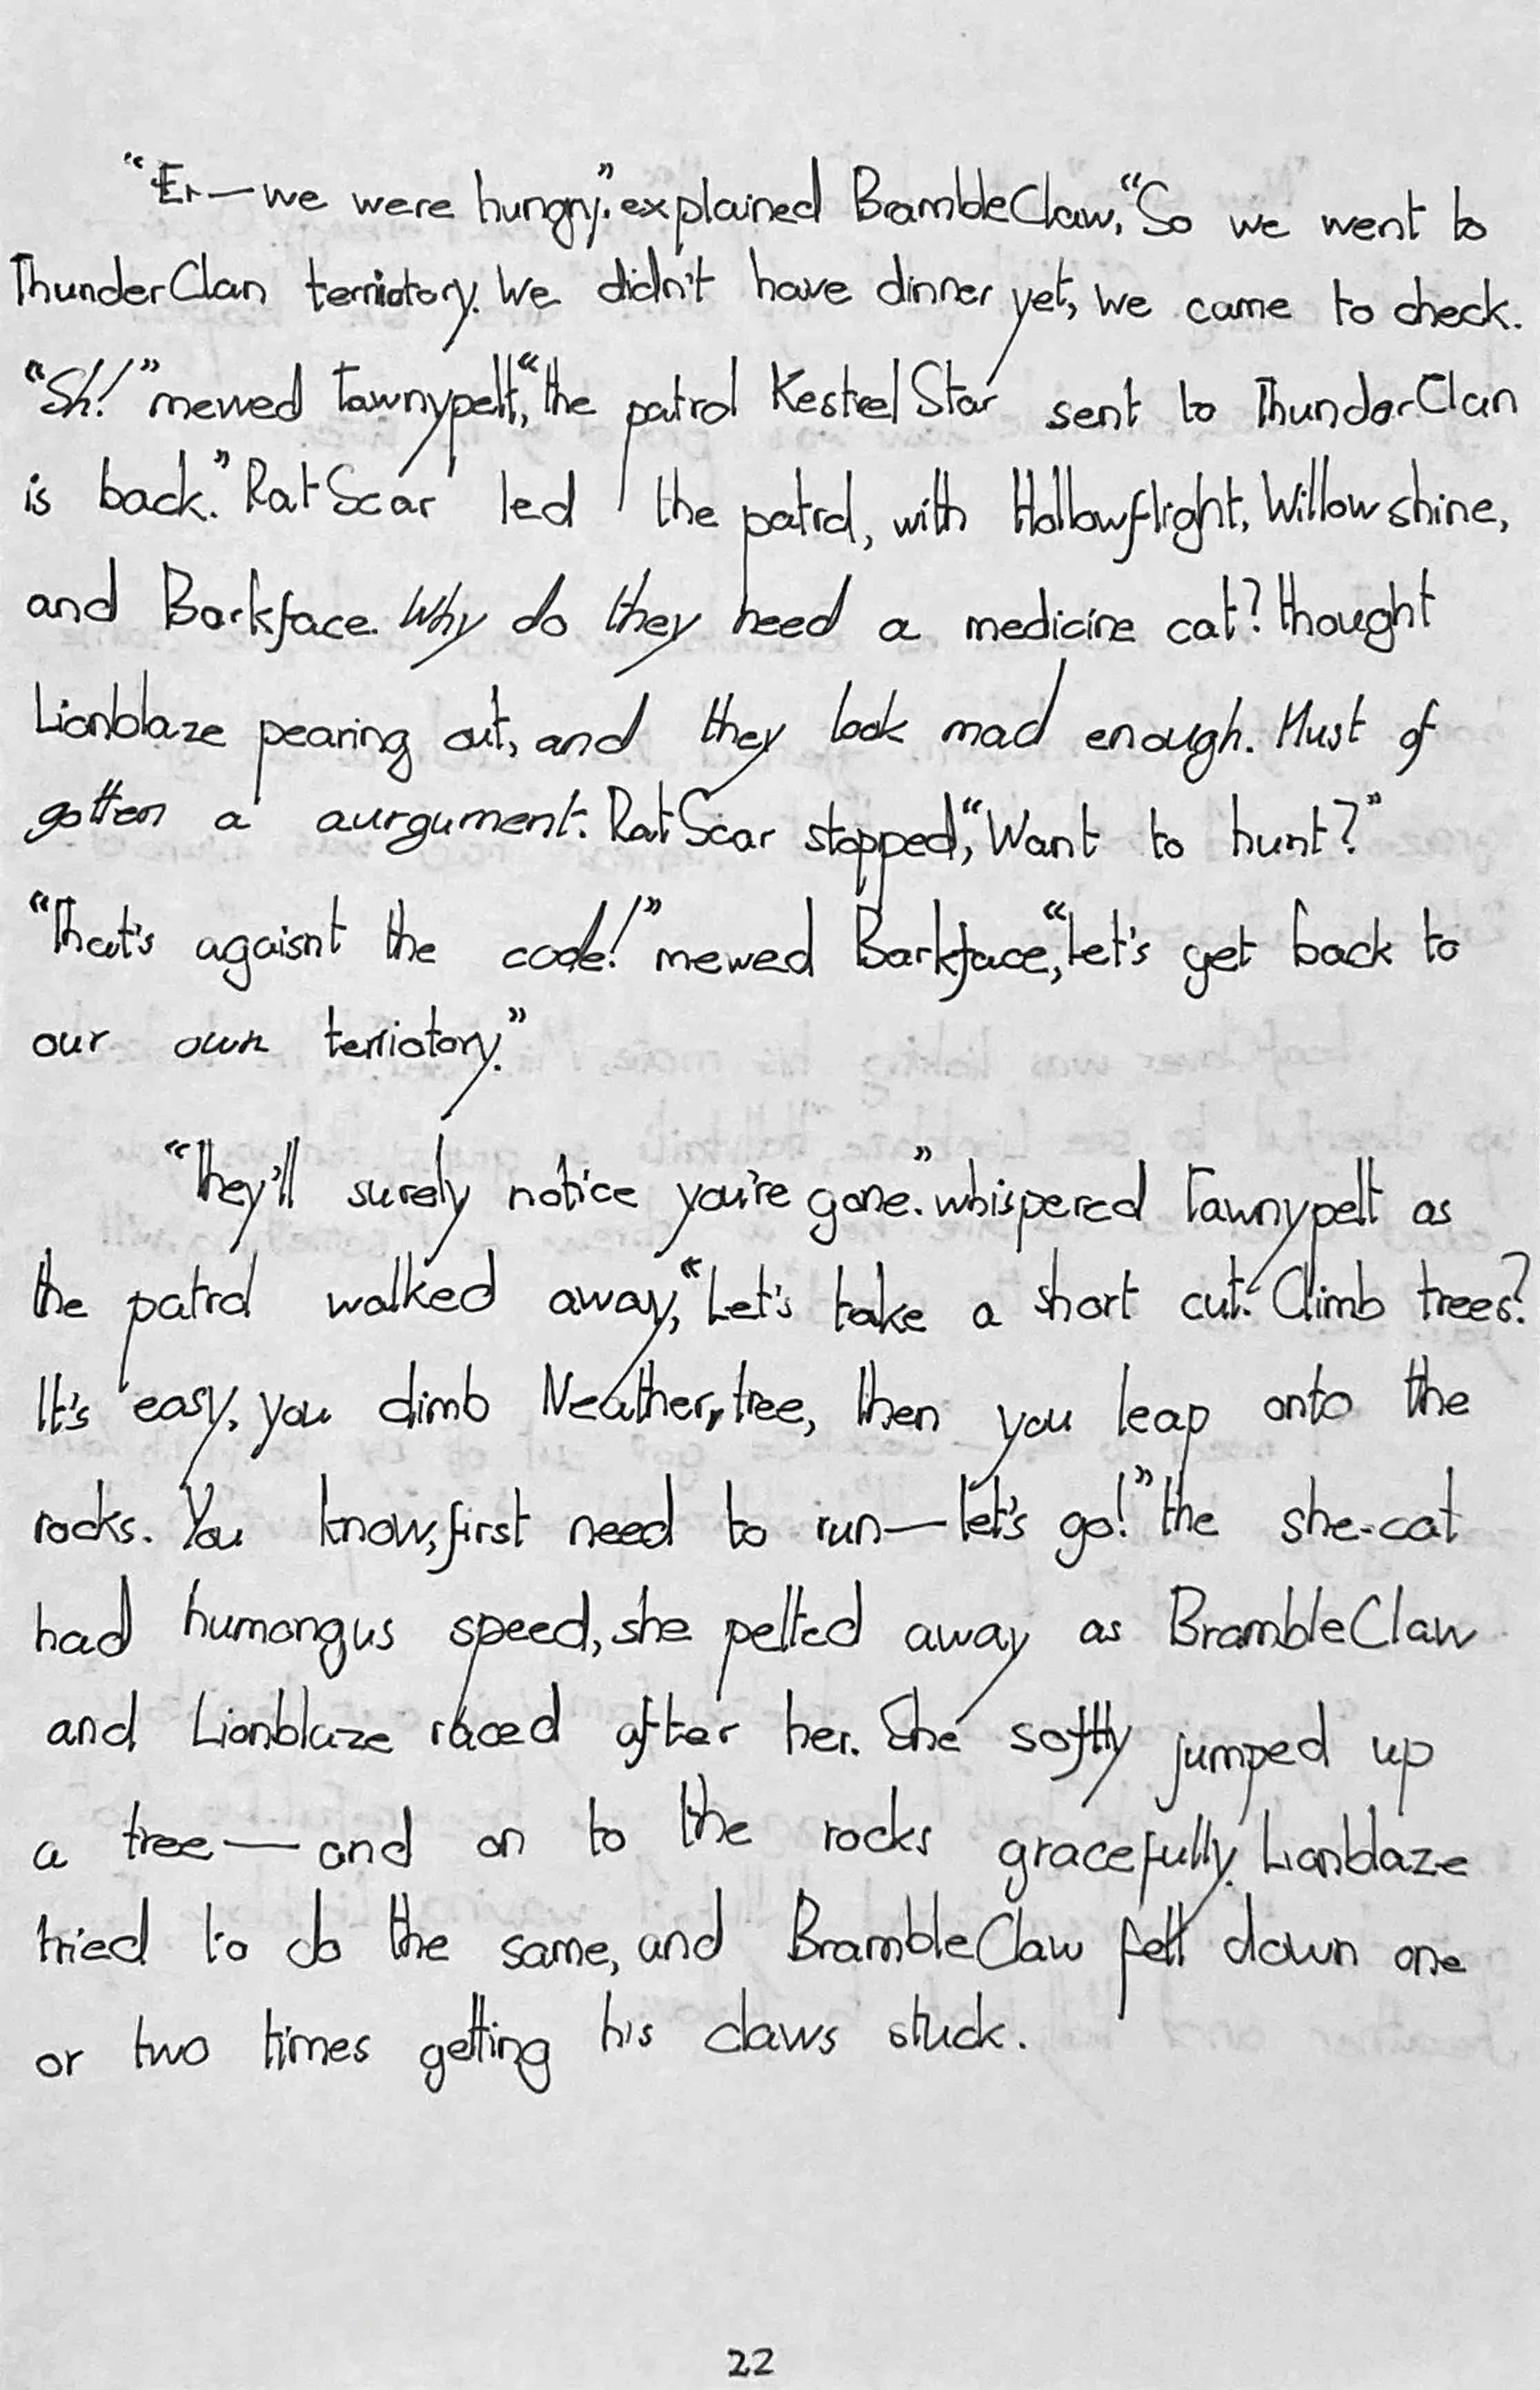 “Er—we were hungry.” explained BrambleClaw, “So we went to
ThunderClan terriotory. We didn't have dinner yet, we came to check.
“Sh!” mewed Tawnypelt, “the patrol KestrelStar sent to ThunderClan
is back.” RatScar led the patrol, with Hollowflight, Willowshine,
and Barkface. Why do they need a medicine cat? thought
Lionblaze pearing out, and they look mad enough. Must of
gotten a aurgument. RatScar stopped, “Want to hunt?”
“That's agaisnt the code!” mewed Barkface, “Let's get back to
our own terriotory.”
“They'll surely notice you're gone.” whispered Tawnypelt as
the patrol walked away, “Let's take a short cut. Climb trees?
It's easy, you climb Neather, tree, then you leap onto the
rocks. You know, first need to run—let's go!” the she-cat
had humongus speed, she pelted away as BrambleClaw
and Lionblaze raced after her. She softly jumped up
a tree—and on to the rocks gracefully. Lionblaze
tried to do the same, and BrambleClaw fell down one
or two times getting his claws stuck.
22